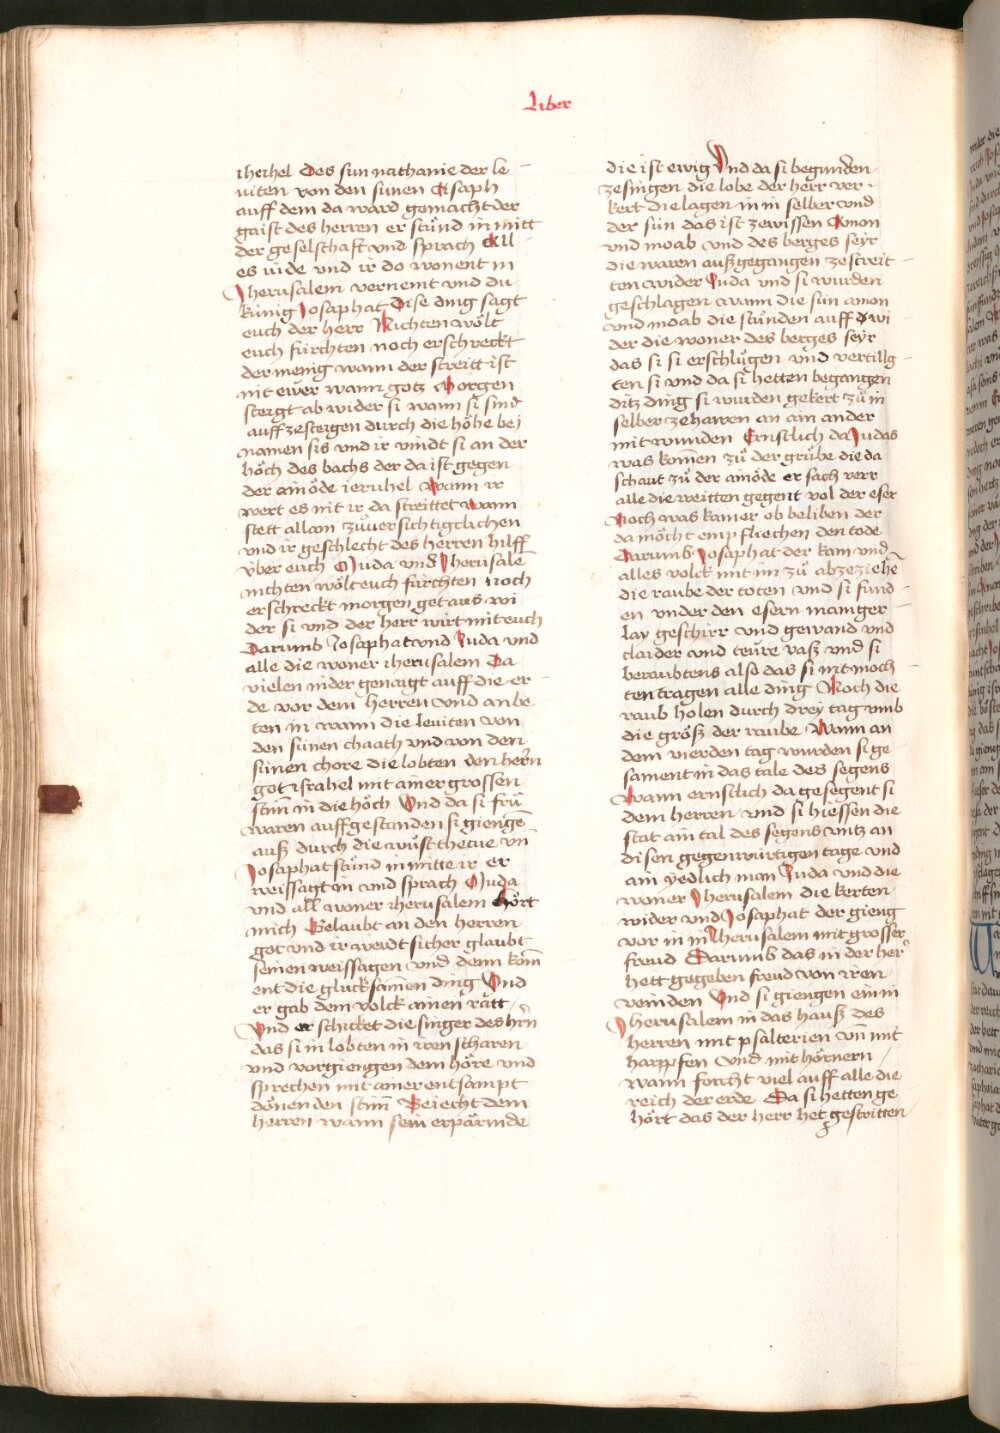 Liber
iheihel Des sun nathanie der le
uiten von den sünen Asaph
auff dem da ward gemacht der
gaist des herren er stůnd in mitt
der geselschafft vnd sprach All
es iude vnd ir do wonent in
Jherusalem vernemt vnd du
künig Josaphat Dise ding sagt
euch der herr Nichten wölt
euch fürchten noch erschreckt
der menig wann der streitt ist
nit ewer wann gotz Morgen
steygt ab wider si wann si sind
auff zesteygen durch die höhe bej
namen sis vnd ir vindt si an der
höch des bachs der da ist gegen
der ainöde ieruhel Wann ir
wert es nit ir da streittet Wann
stett allain zůuersichtigclichen
vnd ir geschlecht des herren hilff
über euch O Juda vnd Jherusalē
nichten wölt euch fürchten noch
erschreckt morgen get aus wi
der si vnd der herr wirt mit euch
Darumb Josaphat vnd Juda vnd
alle die woner iherusalem Da
vielen nider genaigt auff die er
de vor dem herren vnd anbe
ten in wann die leuiten von
den sünen chaath vnd von den
sünen chore die lobten den herrn
got israhel mit ainer grossen
stim̄ in die höch Vnd da si frů
waren auffgestanden si giengē
auß durch die wüst thecue vn̄
Josaphat stůnd in mitte ir er
weissagt in vnd sprach O Juda
vnd all woner iherusalem Hört
mich Gelaubt an den herren
got vnd ir werdt sicher glaubt
seinen weissagen vnd denn kom̄
ent die glücksamen ding Vnd
er gab dem volck ainen rätt
Vnd er schicket die singer des hrn̄
das si in lobten in iren scharen
vnd vorgiengen dem höre vnd
sprechen mit ainer entsampt
dönenden stim̄ Beiecht dem
herren wann sein erpärmde
die ist ewig Vnd da si begunden
zesingen die lobe der herr ver
kert die lagen in in selber vnd
der sün das ist zewissen Amon
vnd moab vnd des berges seyr
die waren außgegangen zestreit
ten wider Juda vnd si wurden
geschlagen wann die sün amon
vnd moab die stůnden auff wi
der die woner des berges seyr
das si si erschlůgen vnd vertillg
ten si vnd da si hetten begangen
ditz ding si wurden gekert zů in
selber zehawen an ain ander
mit wunden Ernstlich da Judas
was kom̄en zů der grůbe die da
schaut zů der ainöde er sach verr
alle die weitten gegent vol der eser
Noch was kainer ob beliben der
da möcht empfliechen den tode
Darumb Josaphat der kam vnd
alles volck mit im zů abzeziehē
die raube der toten vnd si fund
en vnder den esern maniger
lay geschirr vnd gewand vnd
claider vnd teüre vaß vnd si
beraubtens also das si nit moch
ten tragen alle ding Noch die
raub holen durch drey tag vmb
die größ der raube Wann an
dem vierden tag wurden si ge
sament in das tale des segens
Wann ernstlich da gesegent si
dem herren vnd si hiessen die
stat ain tal des segens vntz an
disen gegenwürtigen tage vnd
ain yedlich man Juda vnd die
woner Jherusalem die kerten
wider vnd Josaphat der gieng
vor in in Jherusalem mit grosser
freud Darumb das in der herr
hett gegeben freud von iren
veinden Vnd si giengen ein in
Jherusalem in das hauß des
herren mit psalterien vn̄ mit
harpfen vnd mit hörnern
wann forcht viel auff alle die
reich der erde Da si hetten ge
hört das der herr het gestritten